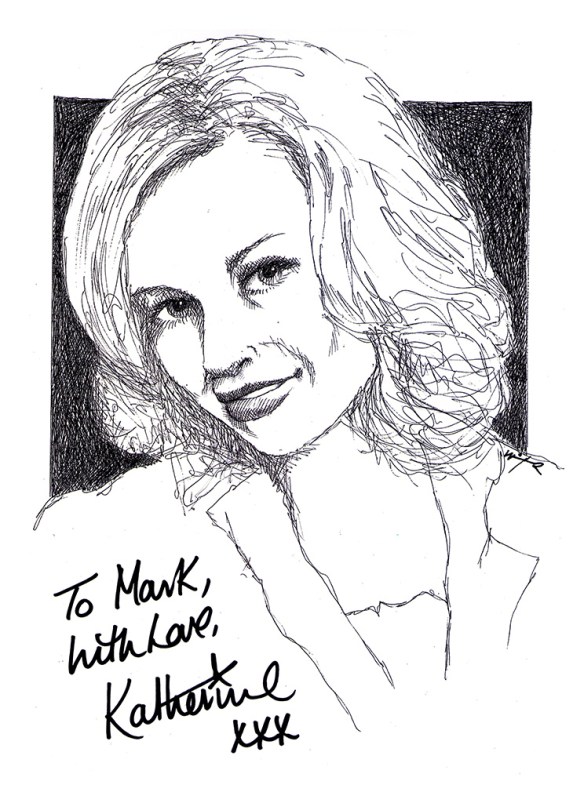 To Mark,
with Love,
Katherine
xxx